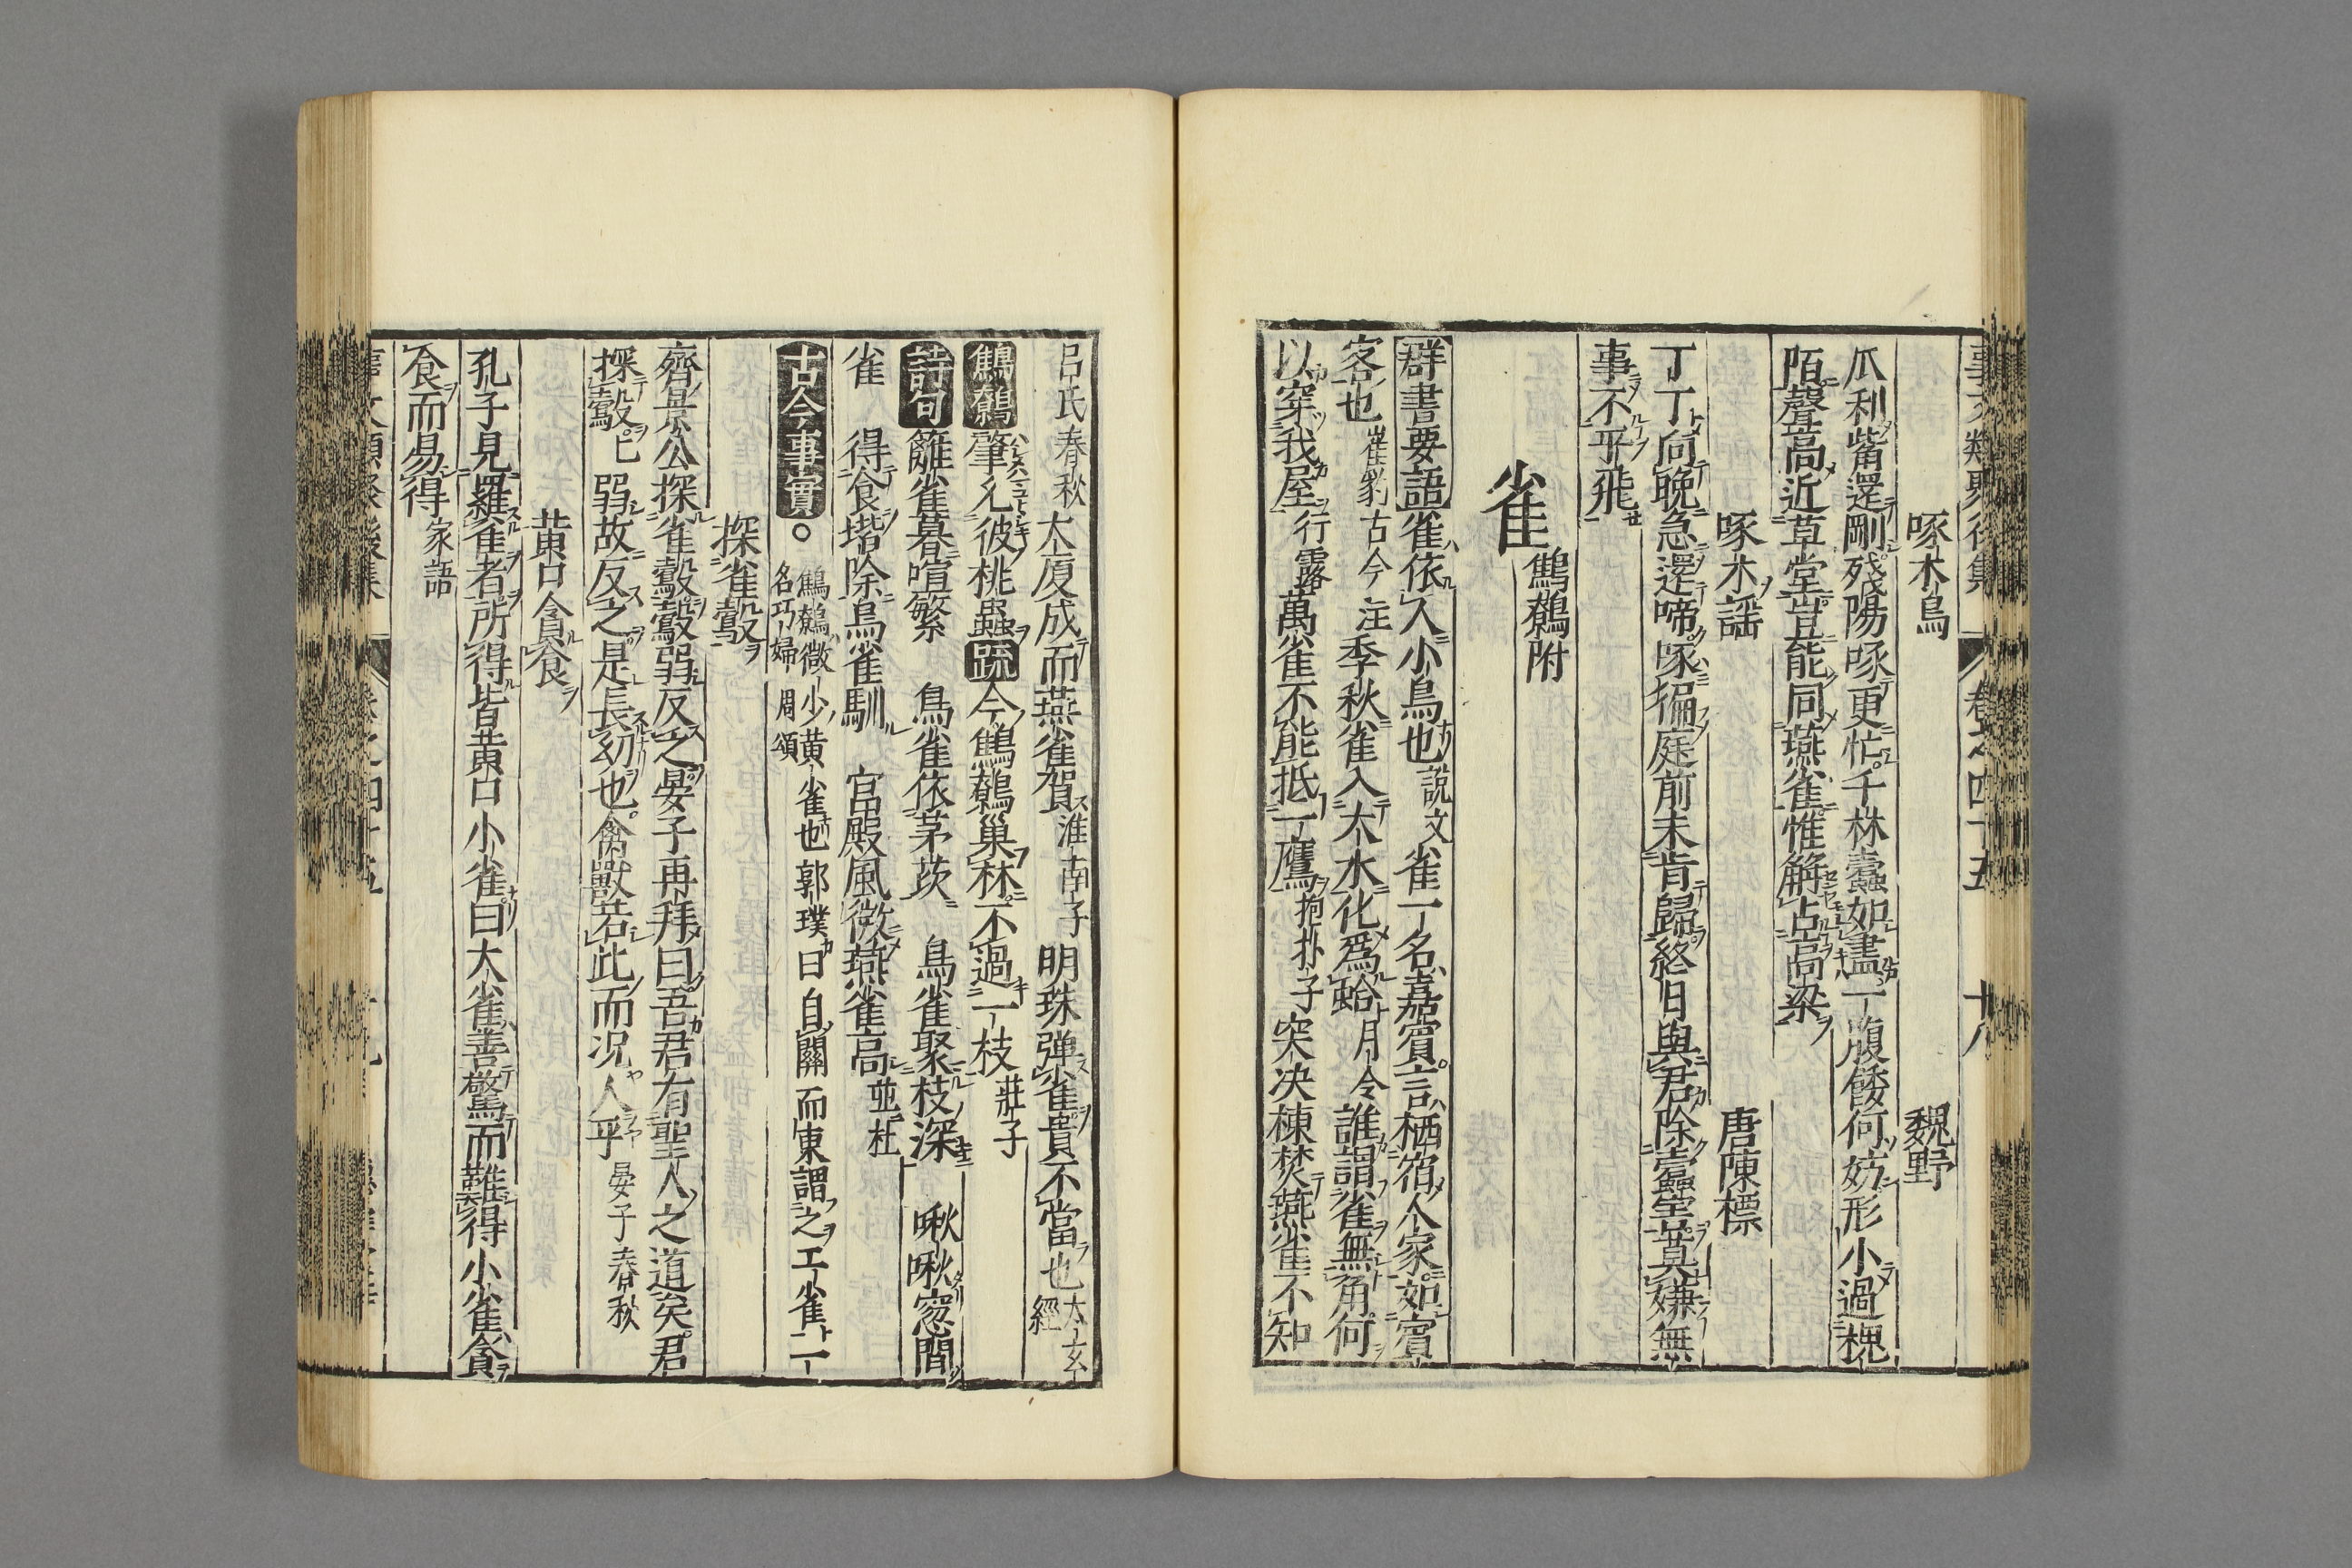 啄木鳥　魏野
爪利觜還剛殘陽啄更忙千林蠹如盡一腹餒何妨形小過槐
陌聲高近草堂豈能同燕雀惟解占高梁
啄木謡　唐陳標
丁丁向晚急還啼啄徧庭前未肯歸終日與君除蠹室莫嫌無
事不平飛
雀　鷦鷯附
群書要語雀依人小鳥也說文雀一名嘉賓言栖宿人家如賓
客也崔豹古今注季秋雀入大水化爲蛤月令誰謂雀無角何
以穿我屋行露萬雀不能抵一鷹抱朴子突决棟焚燕雀不知
呂氏春秋大廈成而燕雀賀淮南子明珠彈雀貴不當也太玄經
鷦鷯肇允彼桃蟲疏今鷦鷯巢林不過一枝莊子
詩句籬雀暮喧繁　鳥雀依茅茨　鳥雀聚枝深　啾啾窓間
雀　得食堦除鳥雀馴　宮殿風微燕雀高並杜
古今事實○鷦鷯微小黃雀也郭璞曰自關而東謂之工雀一名巧婦周頌
探雀鷇
齊景公探雀鷇鷇弱反之晏子再拜曰吾君有聖人之道矣君
探鷇匕弱故反之是長幼也禽獸若此而况人乎晏子春秋
黄口貪食
孔子見羅雀者所得皆黄口小雀曰大雀善驚而難得小雀貪
食而易得家語